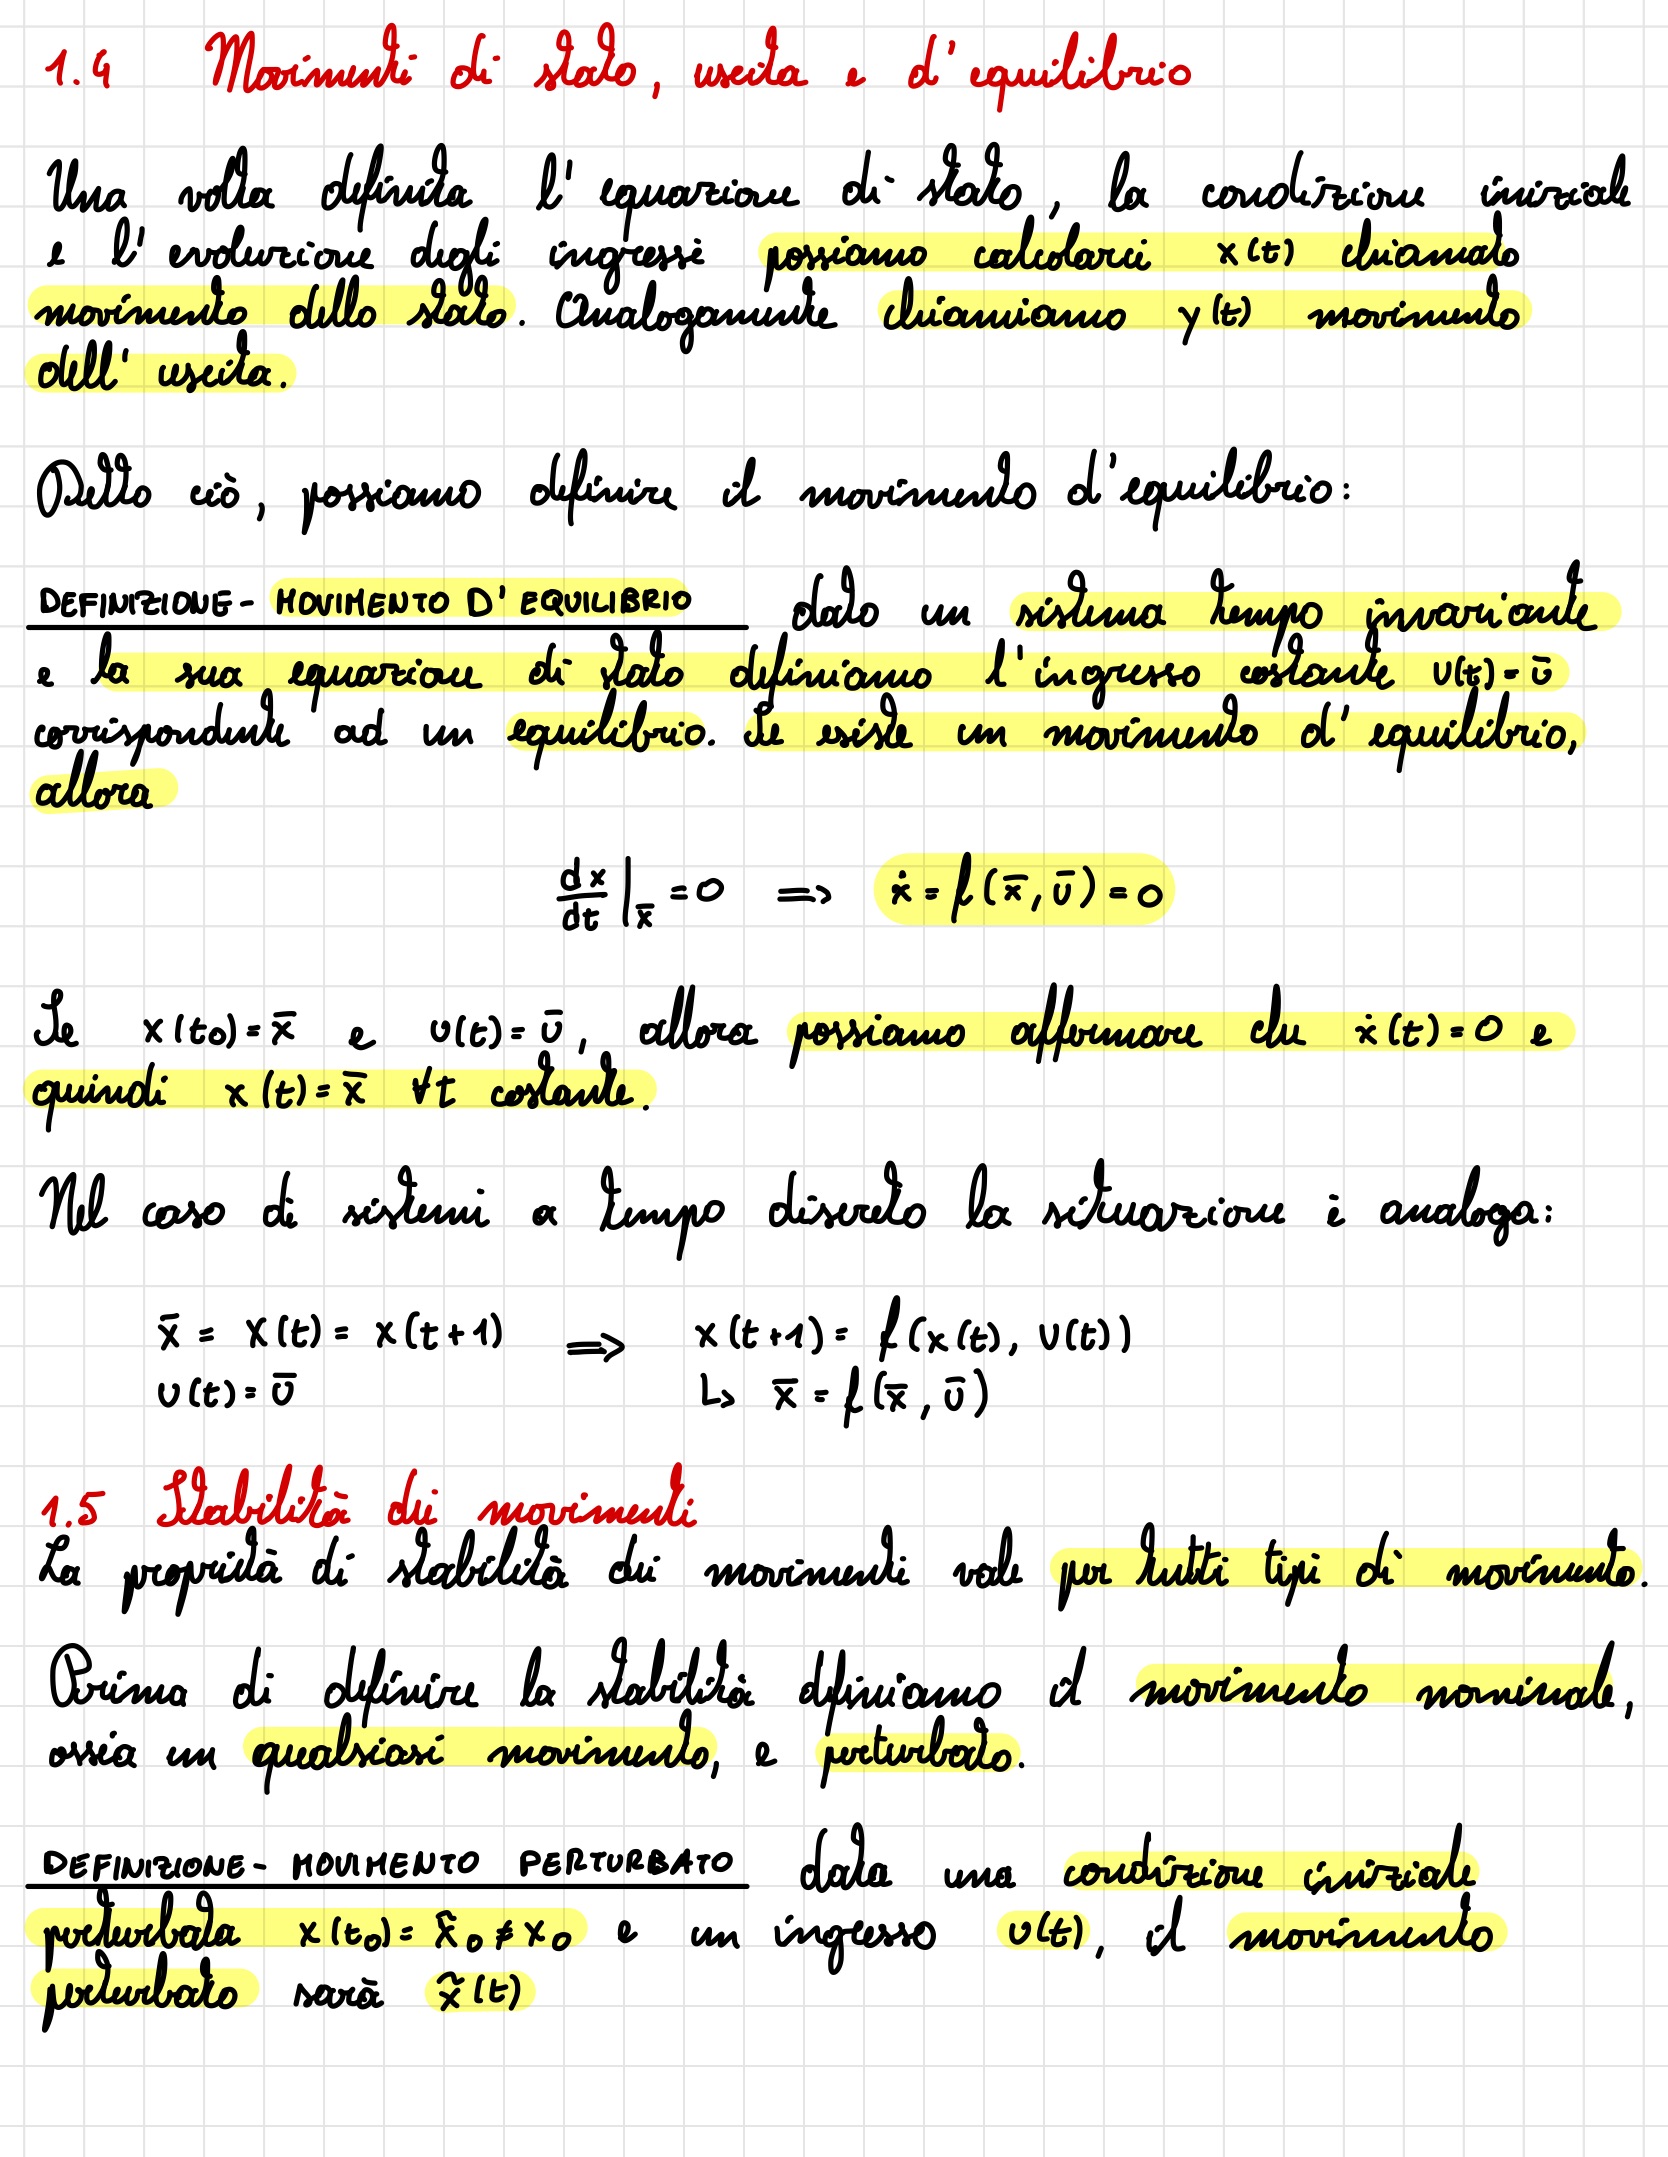 1.4 Movimenti di stato, uscita e d'equilibrio
Una volta definita l'equazione di stato, la condizione iniziale
e l'evoluzione degli ingressi possiamo calcolarci x(t) chiamato
movimento dello stato. Analogamente chiamiamo y(t) movimento
dell'uscita.
Detto ciò, possiamo definire il movimento d'equilibrio:
DEFINIZIONE - MOVIMENTO D'EQUILIBRIO dato un sistema tempo invariante
e la sua equazione di stato definiamo l'ingresso costante u(t) = ū
corrispondente ad un equilibrio. Se esiste un movimento d'equilibrio,
allora
dx/dt |x̄ = 0 ⟹ ẋ = f(x̄, ū) = 0
Se x(t₀) = x̄ e u(t) = ū, allora possiamo affermare che ẋ(t) = 0 e
quindi x(t) = x̄ ∀t costante.
Nel caso di sistemi a tempo discreto la situazione è analoga:
x̄ = x(t) = x(t+1) ⟹ x(t+1) = f(x(t), u(t))
u(t) = ū ↳ x̄ = f(x̄, ū)
1.5 Stabilità dei movimenti
La proprietà di stabilità dei movimenti vale per tutti tipi di movimento.
Prima di definire la stabilità definiamo il movimento nominale,
ossia un qualsiasi movimento, e perturbato.
DEFINIZIONE - MOVIMENTO PERTURBATO data una condizione iniziale
perturbata x(t₀) = x̂₀ ≠ x₀ e un ingresso u(t), il movimento
perturbato sarà x̃(t)